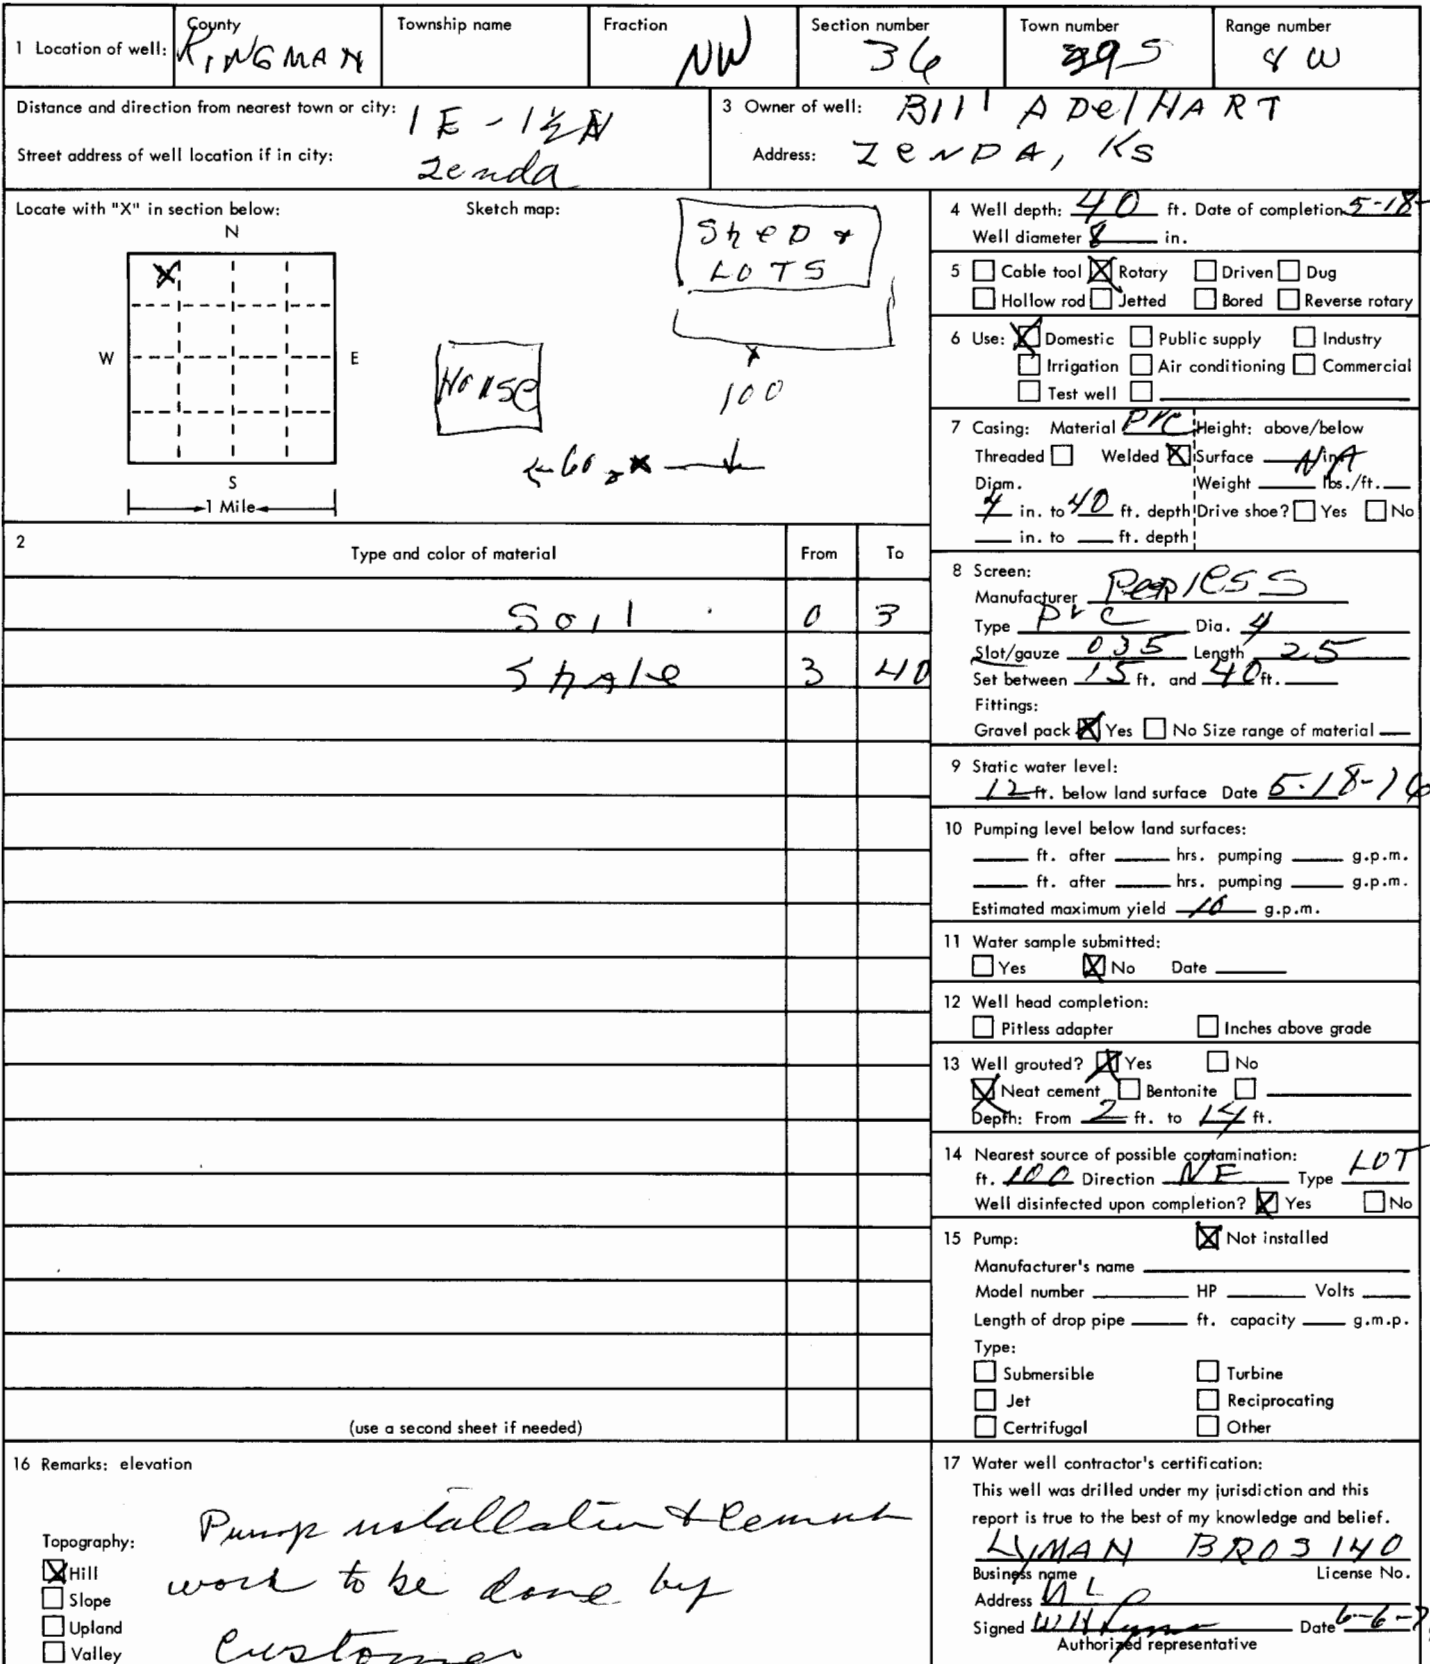 1 Location of well: County KINGMAN Township name Fraction NW Section number 36 Town number 29S Range number 8 W
Distance and direction from nearest town or city: 1 E - 1½ N
Street address of well location if in city: Zenda
3 Owner of well: Bill ADelHART
Address: ZeNDA, KS
Locate with "X" in section below:
N
X
W E
S
1 Mile
Sketch map:
SheD &
LOTS
House
x
100
60 x
2 Type and color of material From To
Soil 0 3
ShAle 3 40
(use a second sheet if needed)
4 Well depth: 40 ft. Date of completion 5-18-
Well diameter 8 in.
5 Cable tool X Rotary Driven Dug
Hollow rod Jetted Bored Reverse rotary
6 Use: X Domestic Public supply Industry
Irrigation Air conditioning Commercial
Test well
7 Casing: Material PVC Height: above/below
Threaded Welded X Surface NA in.
Diam. Weight lbs./ft.
4 in. to 40 ft. depth Drive shoe? Yes No
in. to ft. depth
8 Screen:
Manufacturer PeerlESS
Type PVC Dia. 4
Slot/gauze 035 Length 25
Set between 15 ft. and 40 ft.
Fittings:
Gravel pack X Yes No Size range of material
9 Static water level:
12 ft. below land surface Date 5-18-76
10 Pumping level below land surfaces:
ft. after hrs. pumping g.p.m.
ft. after hrs. pumping g.p.m.
Estimated maximum yield 10 g.p.m.
11 Water sample submitted:
Yes X No Date
12 Well head completion:
Pitless adapter Inches above grade
13 Well grouted? X Yes No
X Neat cement Bentonite
Depth: From 2 ft. to 14 ft.
14 Nearest source of possible contamination:
ft. 100 Direction NE Type LOT
Well disinfected upon completion? X Yes No
15 Pump: X Not installed
Manufacturer's name
Model number HP Volts
Length of drop pipe ft. capacity g.m.p.
Type:
Submersible Turbine
Jet Reciprocating
Certrifugal Other
16 Remarks: elevation
Pump installation & Cement
work to be done by
Customer
Topography:
X Hill
Slope
Upland
Valley
17 Water well contractor's certification:
This well was drilled under my jurisdiction and this
report is true to the best of my knowledge and belief.
LYMAN BROS 140
Business name License No.
Address
Signed Date 6-6-7
Authorized representative